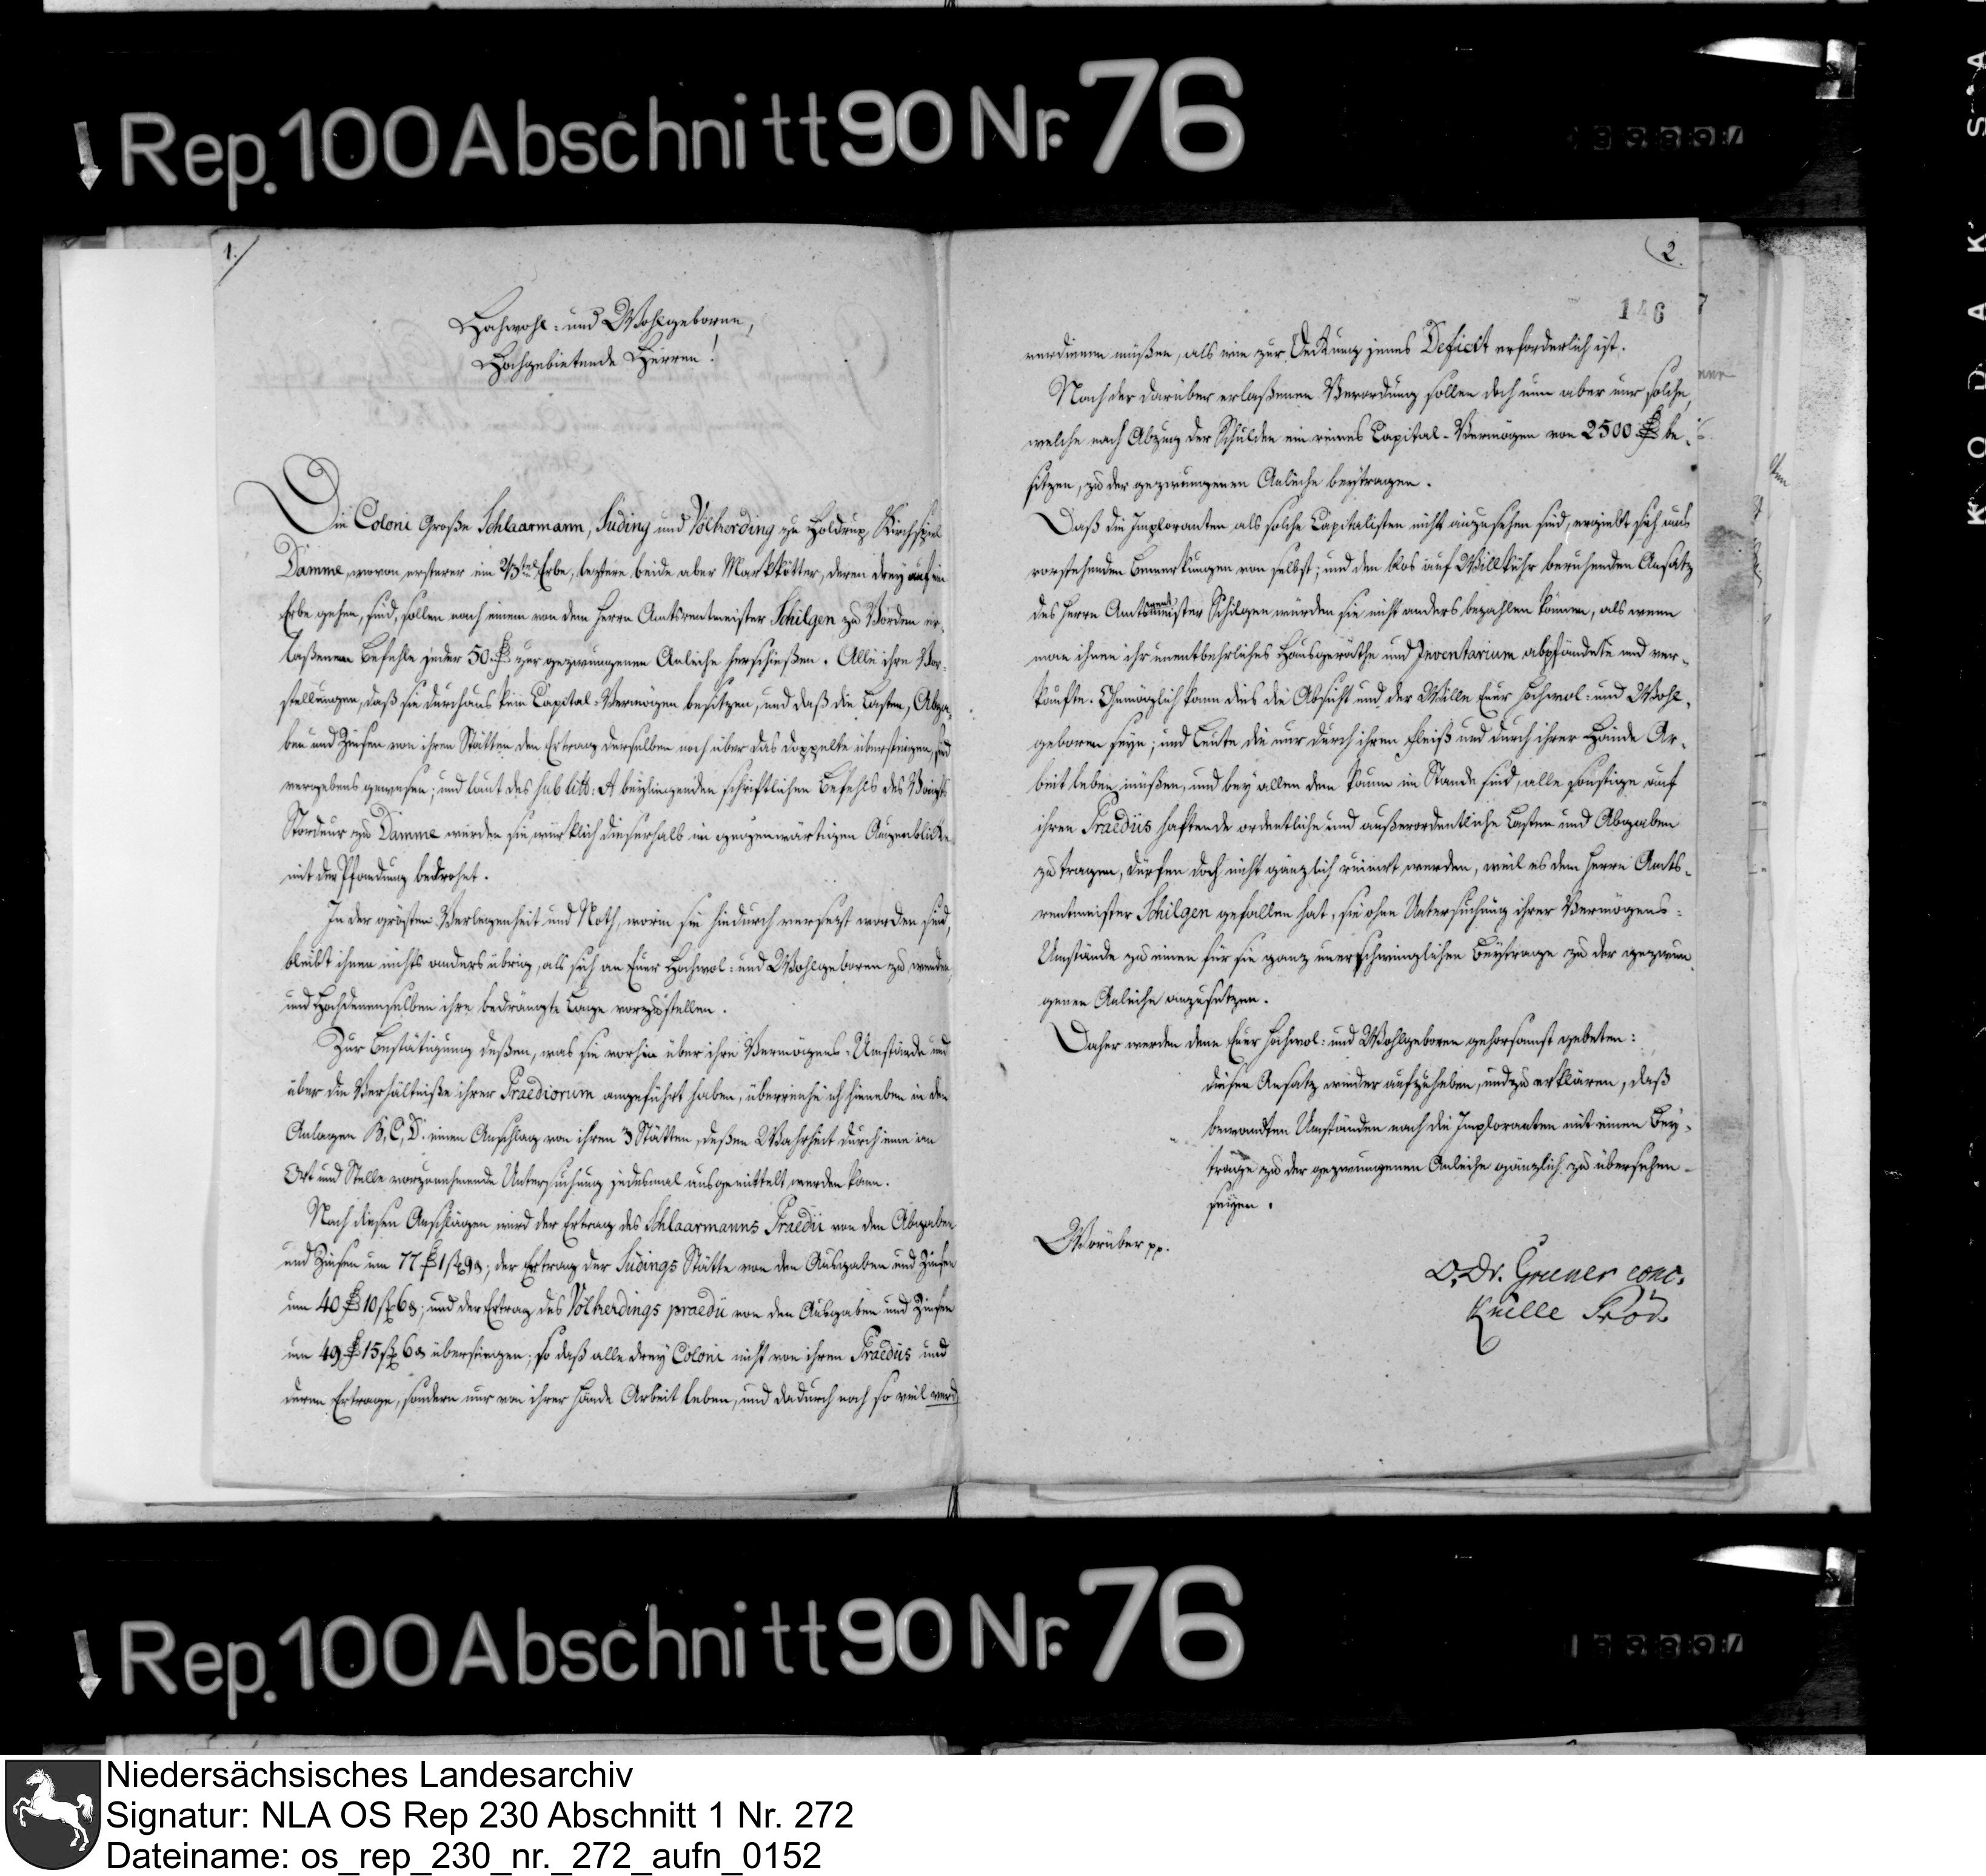 Rep. 100 Abschnitt 90 Nr. 76
1.
Hochwohl- und Wohlgeborne,
Hochgebietende Herren!
Die Coloni Große Schlaarmann, Suding und Völkerding zu Holdrup, Kirchspiel
Damme, wovon ersterer ein 2/3tel Erbe, letztere beide aber Markkötter, deren drey auf ein
Erbe gehen, sind, sollen nach einem von dem Herrn Amtsrentmeister Schilgen zu Vörden er-
laßenen Befehle jeder 50 rt zur gezwungenen Anleihe herschießen. Alle ihre Vor-
stellungen, daß sie durchaus kein Capital-Vermögen besitzen, und daß die Lasten, Abga-
ben und Zinsen von ihren Stätten den Ertrag derselben noch über das doppelte übersteigen, sind
vergebens gewesen; und laut des sub litt: A beyliegenden schriftlichen Befehls des Voigts
Stordeur zu Damme werden sie würklich dieserhalb im gegenwärtigen Augenblicke
mit der Pfandung bedrohet.
In der grösten Verlegenheit und Noth, worin sie hiedurch versetzt worden sind,
bleibt ihnen nichts anders übrig, als sich an Euer Hochwol- und Wohlgeboren zu wenden
und Hochdenenselben ihre bedrängte Lage vorzustellen.
Zur Bestätigung deßen, was sie vorhin über ihre Vermögens-Umstände und
über die Verhältniße ihrer Praediorum angeführt haben, überreiche ich hieneben in den
Anlagen B, C, D. einen Anschlag von ihren 3 Stätten, deßen Wahrheit durch eine an
Ort und Stelle vorzunehmende Untersuchung jedesmal ausgemittelt werden kann.
Nach diesen Anschlägen wird der Ertrag des Schlaarmanns Praedii von den Abgaben
und Zinsen um 77 rt 1 ß 9 d; der Ertrag der Sudings Stätte von den Ausgaben und Zinsen
um 40 rt 10 ß 6 d; und der Ertrag des Völkerdings praedii von den Ausgaben und Zinsen
um 49 rt 15 ß 6 d überstiegen; so daß alle drey Coloni nicht von ihren Praediis und
deren Ertrage, sondern nur von ihrer Hände Arbeit leben, und dadurch noch so viel verd
2.
146
verdienen müßen, als wie zur Deckung jenes Deficit erforderlich ist.
Nach der darüber erlaßenen Verordnung sollen doch nun aber nur solche,
welche nach Abzug der Schulden ein reines Capital-Vermögen von 2500 rt be-
sitzen, zu der gezwungenen Anleihe beytragen.
Daß die Imploranten als solche Capitalisten nicht anzusehen sind, ergiebt sich aus
vorstehenden Bemerkungen von selbst; und den blos auf Willkühr beruhenden Ansatz
des Herrn Amtsrentmeister Schilgen würden sie nicht anders bezahlen können, als wenn
man ihnen ihr unentbehrliches Hausgeräthe und Inventarium abpfändete und ver-
kaufte. Ohnmöglich kann dies die Absicht und der Wille Euer Hochwol- und Wohl-
geboren seyn; und Leute die nur durch ihren Fleiß und durch ihrer Hände Ar-
beit leben müßen, und bey allen dem kaum im Stande sind, alle sonstige auf
ihren Praediis haftende ordentliche und außerordentliche Lasten und Abgaben
zu tragen, dürfen doch nicht gänzlich ruinirt werden, weil es dem Herrn Amts-
rentmeister Schilgen gefallen hat, sie ohne Untersuchung ihrer Vermögens-
Umstände zu einen für sie ganz unerschwinglichen Beytrage zu der gezwun-
genen Anleihe anzusetzen.
Daher werden denn Euer Hochwol- und Wohlgeboren gehorsamst gebeten:
diesen Ansatz wieder aufzuheben, und zu erklären, daß
bewandten Umständen nach die Imploranten mit einen Bey-
trage zu der gezwungenen Anleihe gänzlich zu übersehen
seyen.
Worüber pp.
D. Dr. Gruner conc.
Knille Prod.
Rep. 100 Abschnitt 90 Nr. 76
KODAK SA
Niedersächsisches Landesarchiv
Signatur: NLA OS Rep 230 Abschnitt 1 Nr. 272
Dateiname: os_rep_230_nr._272_aufn_0152